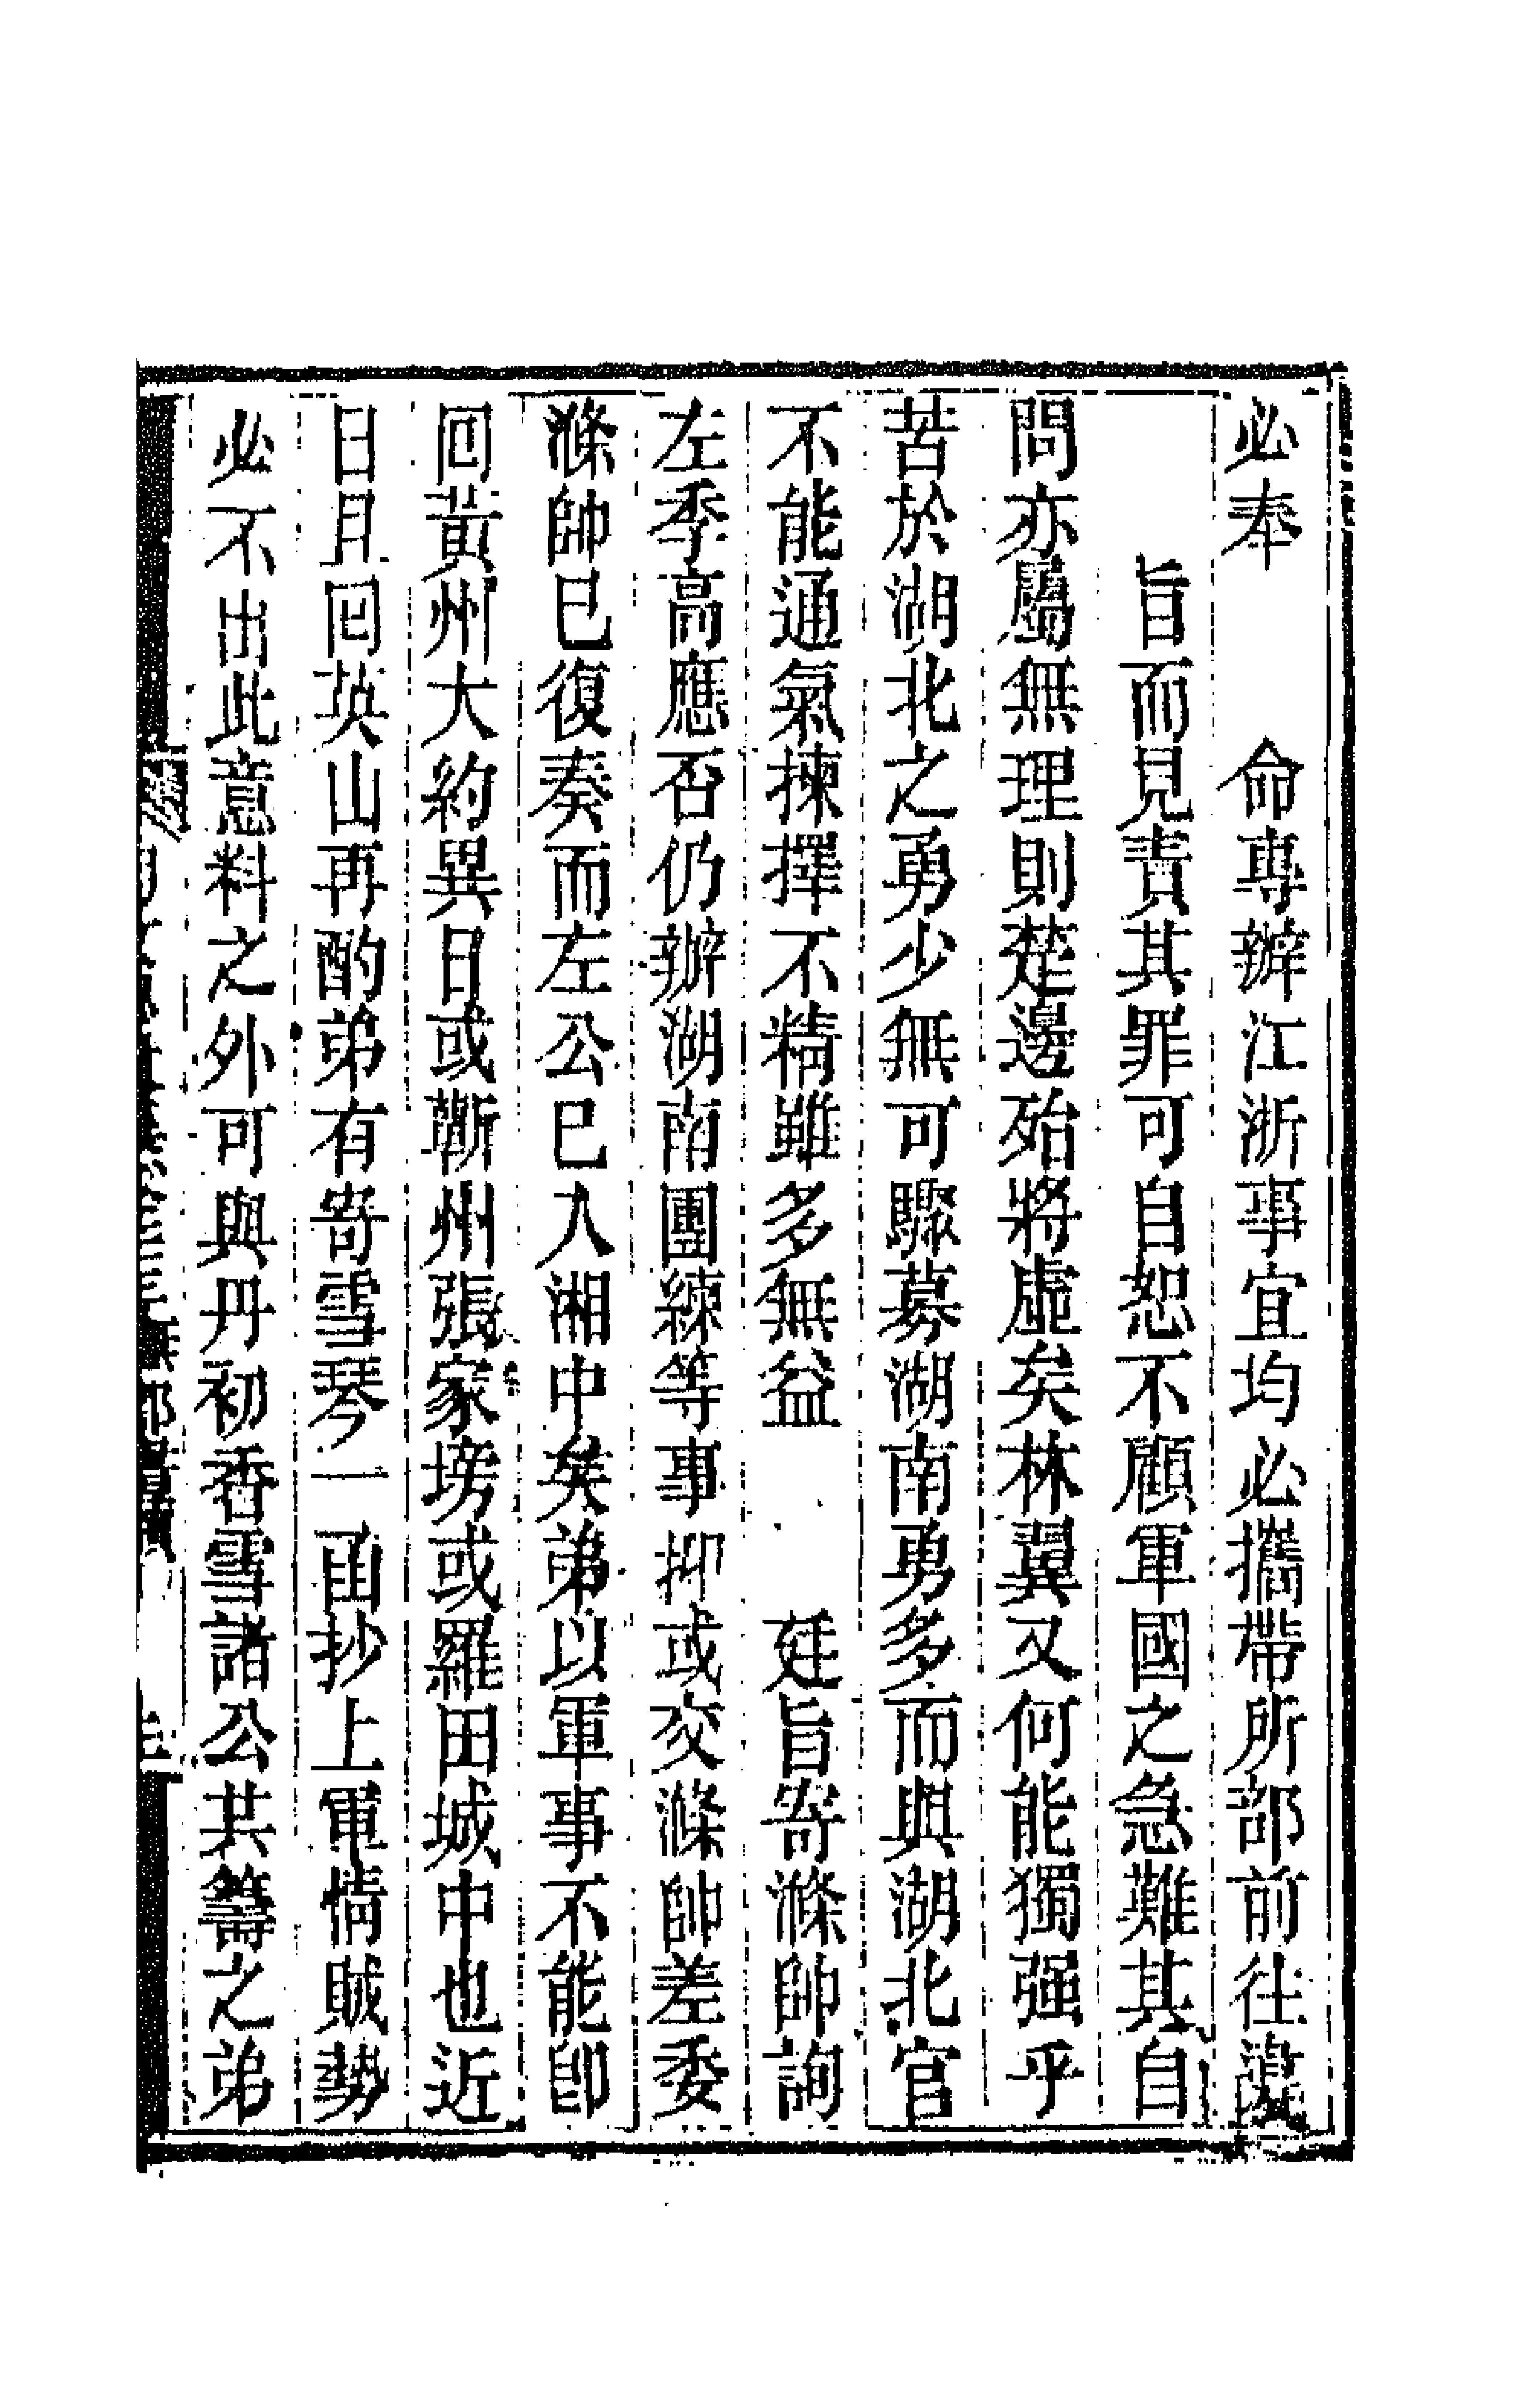 必奉　命專辦江浙事宜均必攜帶所部前往違
旨而見責其罪可自恕不顧軍國之急難其自
問亦屬無理則楚邊殆將虛矣林翼又何能獨强乎
苦於湖北之勇少無可驟募湖南勇多而與湖北官
不能通氣揀擇不精雖多無益　廷旨寄滌帥詢
左季高應否仍辦湖南團練等事抑或交滌帥差委
滌帥已復奏而左公已入湘中矣弟以軍事不能卽
回黃州大約異日或蘄州張家塝或羅田城中也近
日且回英山再酌弟有寄雪琴一函抄上軍情賊勢
必不出此意料之外可與丹初香雪諸公共籌之弟